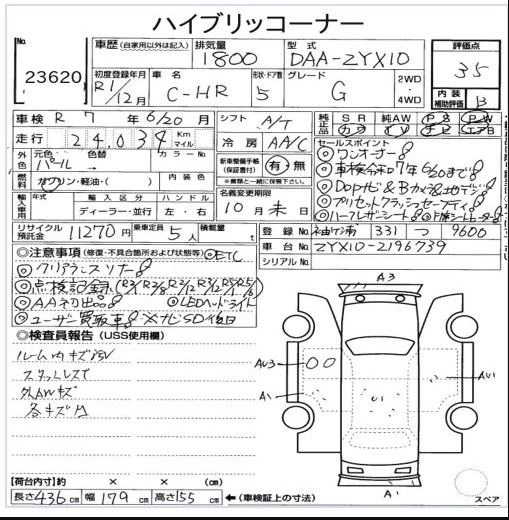 ハイブリッドコーナー
No. 23620
車歴 (自家用以外は記入) 排気量 1800 型式 DAA-ZYX10 評価点 3.5
初度登録年月 R1/12月 車名 C-HR 形状・ドア数 5 グレード G 2WD・4WD 内装補助評価 B
車検 R 7年6/20月 シフト A/T 純正品 SR 純AW PS PW
走行 24,034 Km マイル 冷房 AA/C カワ TV ナビ エアB
外色 元色 パール 色替 カラーNo. 新車整備手帳(保証書付) 有・無
※書類と一緒に保管して下さい。
セールスポイント
◎ワンオーナー
◎車検令和7年6/20まで
燃料 ガソリン・軽油・( ) 内装色
◎Dopナビ&Bカメラ&地デジ
輸入車用 モデル年式 ディーラー・並行 ハンドル 左・右 名義変更期限 10月末日
◎プリセットクラッシュセーフティ
◎ハーフレザーシート ◎前席シートヒーター
リサイクル預託金 11270円 乗車定員 5人 積載量 t 登録No. 袖ケ浦 331 つ 9600
車台No. ZYX10-2196739
シリアルNo.
◎注意事項 (修復・不具合箇所および状態等) ◎ETC
◎クリアランスソナー
◎点検記録 (R3/1 R3/8 R3/12 R5/12 R5/1/6)
◎AA初出品 ◎LEDヘッドライト
◎ユーザー買取車 ※ナビSD後日
◎検査員報告 (USS使用欄)
ルーム内キズ
スタッドレスT
外AWキズ
各キズ凹
A3
AU3
A1
U1
AU1
A1
【荷台内寸】約 × × cm
長さ436cm 幅179cm 高さ155cm ←(車検証上の寸法)
スペア